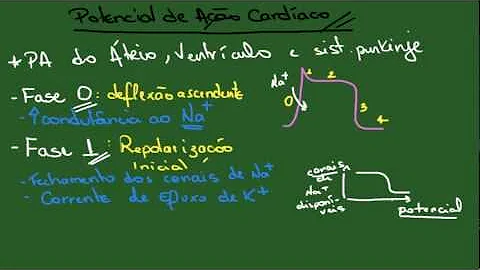 Potencial de Ação Cardíaco
* PA do Áteio, ventrículo e sist. purkinje
- Fase 0: deflexão ascendente
- ↑ condutância ao Na⁺
- Fase 1: Repolarização inicial
- Fechamento dos canais de Na⁺
- Corrente de efluxo de K⁺
Na⁺
0
1
2
3
4
canais de Na⁺ disponíveis
potencial